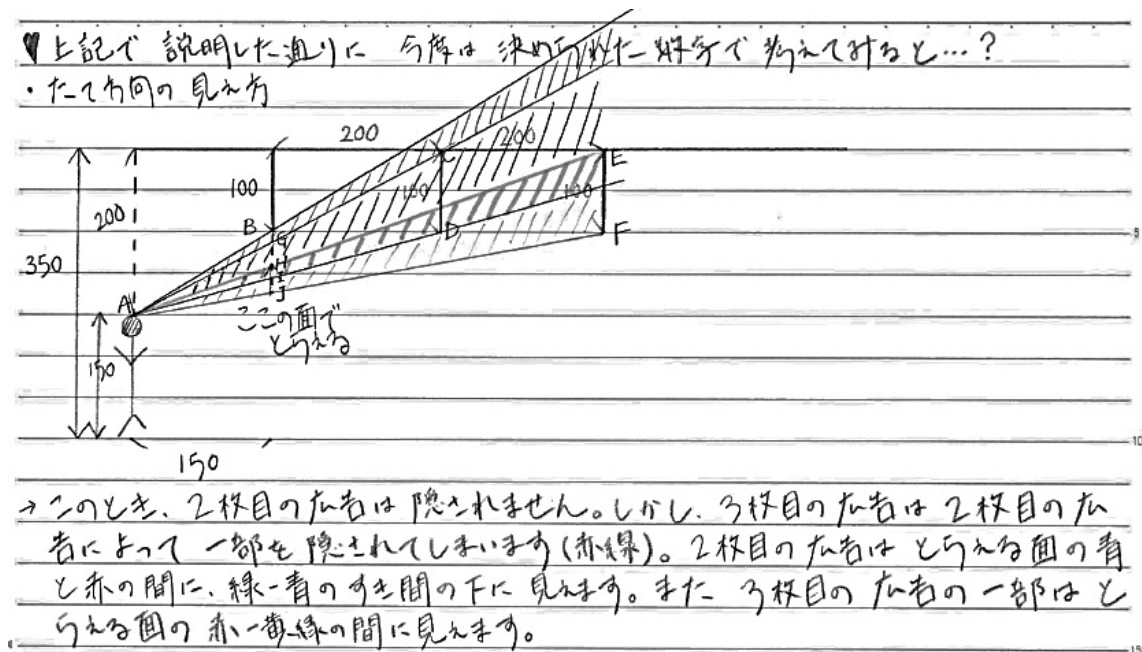 ♥上記で説明した通りに 今度は 決められた数字で考えてみると…?
・たて方向の見え方
200
200
100
100
100
200
350
150
150
A
B
C
D
E
F
G
H
I
J
ここの面で
とらえる
→このとき、2枚目の広告は隠されません。しかし、3枚目の広告は2枚目の広
告によって一部を隠されてしまいます(赤緑)。2枚目の広告はとらえる面の青
と赤の間に、緑-青のすき間の下に見えます。また 3枚目の広告の一部はと
らえる面の赤-黄緑の間に見えます。
5
10
15